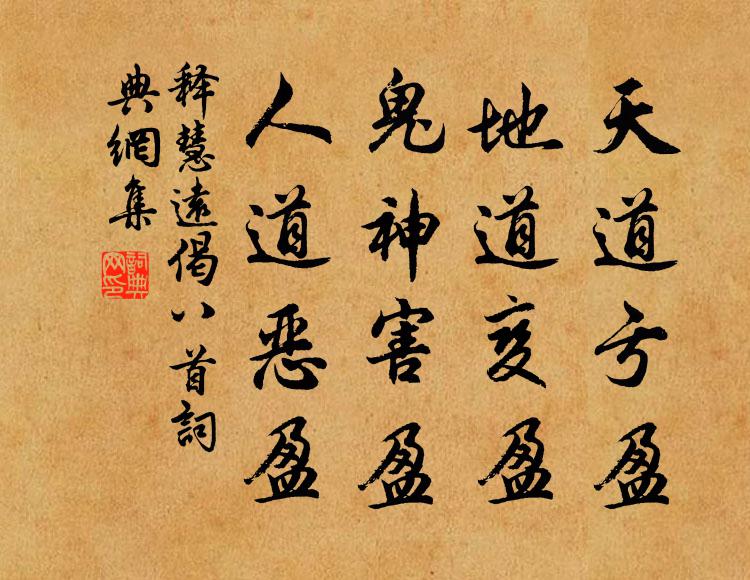 天道亏盈
地道变盈
鬼神害盈
人道恶盈
释慧远偈八首词
典网集
詞典
网印